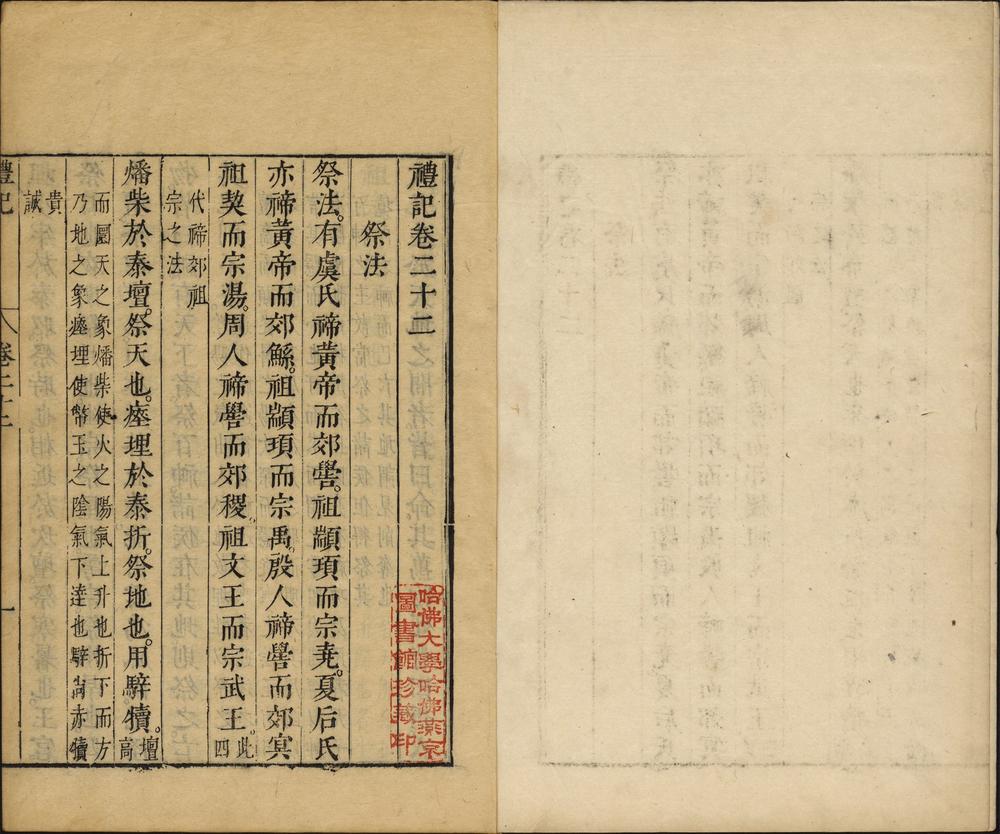 禮記卷二十二
祭法
祭法。有虞氏禘黃帝而郊嚳。祖顓頊而宗堯。夏后氏
亦禘黃帝而郊鯀。祖顓頊而宗禹。殷人禘嚳而郊冥
祖契而宗湯。周人禘嚳而郊稷。祖文王而宗武王。此四
代禘郊祖
宗之法
燔柴於泰壇。祭天也。瘞埋於泰折。祭地也。用騂犢。壇高
而圜天之象燔柴使火之陽氣上升也折下而方
乃地之象瘞埋使幣玉之陰氣下達也騂尚赤犢
貴
誠
禮記
卷二十二
一
哈佛大學哈佛燕京
圖書館珍藏印